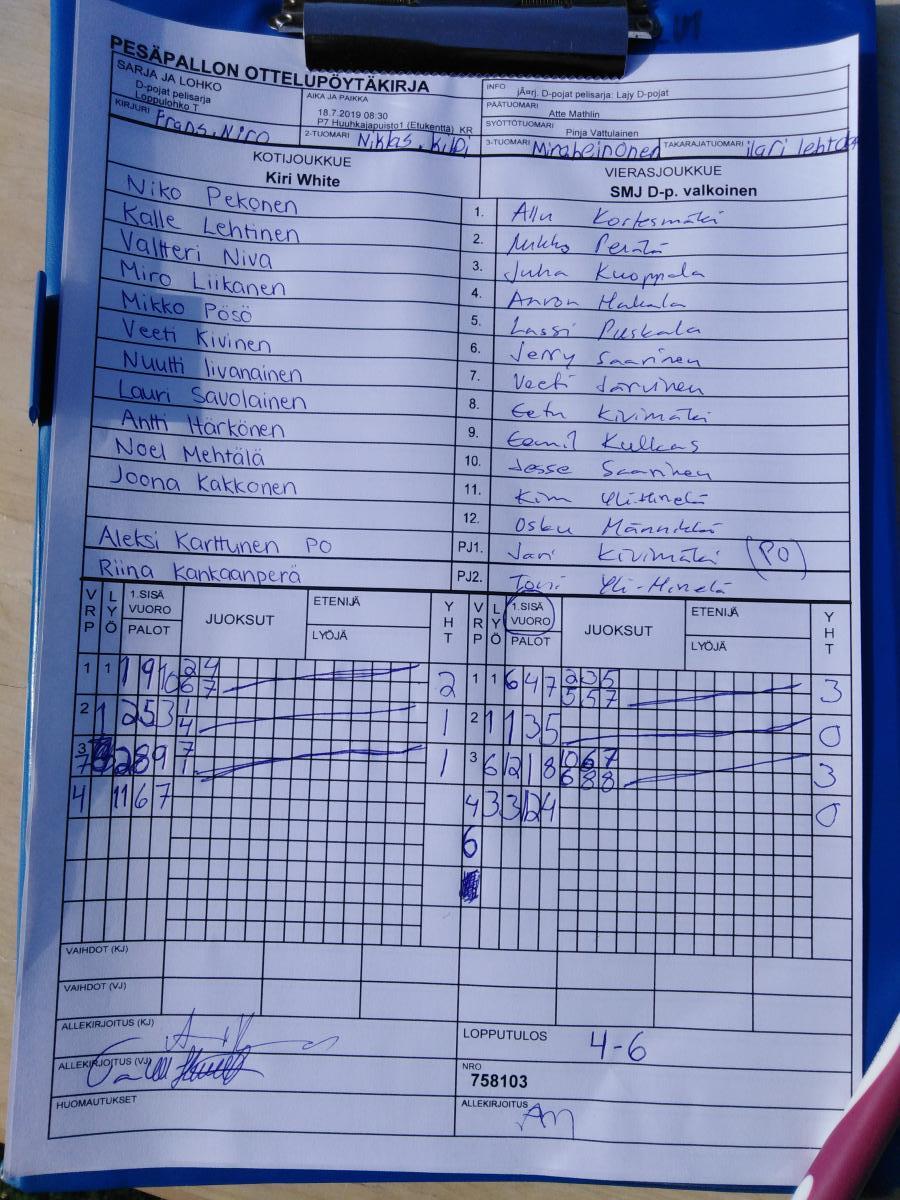 PESÄPALLON OTTELUPÖYTÄKIRJA
SARJA JA LOHKO
D-pojat pelisarja
Loppulohko T
AIKA JA PAIKKA
18.7.2019 08:30
P7 Huuhkajapuisto1 (Etukenttä) KR
INFO
jÃ¤rj. D-pojat pelisarja: Lajy D-pojat
PÄÄTUOMARI Atte Mathlin
SYÖTTÖTUOMARI Pinja Vattulainen
KIRJURI Frans, Niro
2-TUOMARI Niklas, Kilpi
3-TUOMARI
TAKARAJATUOMARI ilari
KOTIJOUKKUE
Kiri White
VIERASJOUKKUE
SMJ D-p. valkoinen
Niko Pekonen 1. Allu Kortesmäki
Kalle Lehtinen 2. Mikko Perälä
Valtteri Niva 3. Juha Kuoppala
Miro Liikanen 4. Hakala
Mikko Pösö 5. Lassi Puskala
Veeti Kivinen 6. Jerry Saarinen
Nuutti Iivanainen 7. Veeti Järvinen
Lauri Savolainen 8. Eetu Kivimäki
Antti Härkönen 9. Eemil Kulkas
Noel Mehtälä 10. Jesse Saarinen
Joona Kakkonen 11. Kim Yli-Hinelä
12. Osku Männikkö
Aleksi Karttunen PO PJ1. Jari Kivimäki (PO)
Riina Kankaanperä PJ2. Toni Yli-Hinelä
VRP LYÖ 1.SISÄ VUORO PALOT JUOKSUT ETENIJÄ LYÖJÄ YHT VRP LYÖ 1.SISÄ VUORO PALOT JUOKSUT ETENIJÄ LYÖJÄ YHT
1 1 1 9 10 2 4 2 1 1 6 4 7 2 3 5 3
6 7 5 5 7
2 1 2 5 3 1 1 2 1 1 3 5 0
4
3 2 8 9 7 1 3 6 12 1 8 10 6 7 3
7 1 6 8 8
4 11 6 7 4 3 3 12 4 0
6
VAIHDOT (KJ)
VAIHDOT (VJ)
ALLEKIRJOITUS (KJ)
LOPPUTULOS 4-6
ALLEKIRJOITUS (VJ)
NRO
758103
HUOMAUTUKSET
ALLEKIRJOITUS AM